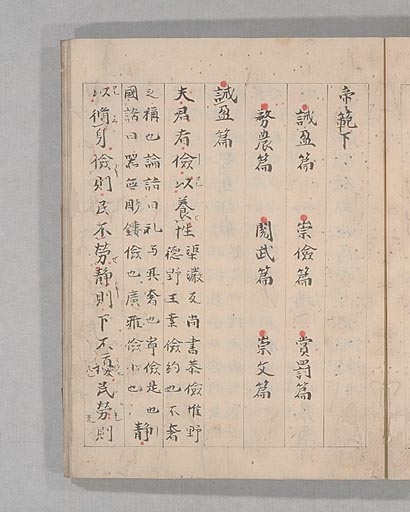 帝範下
誡盈篇 崇儉篇 賞罰篇
務農篇 閱武篇 崇文篇
誡盈篇
夫君者儉以養性
尚書恭儉惟
德野王業儉約也不奢
之稱也論語曰礼与其奢也寧儉是也
國語曰器無彫鏤儉也廣雅儉少也
静
以脩身儉則民不勞静則下不擾民勞則